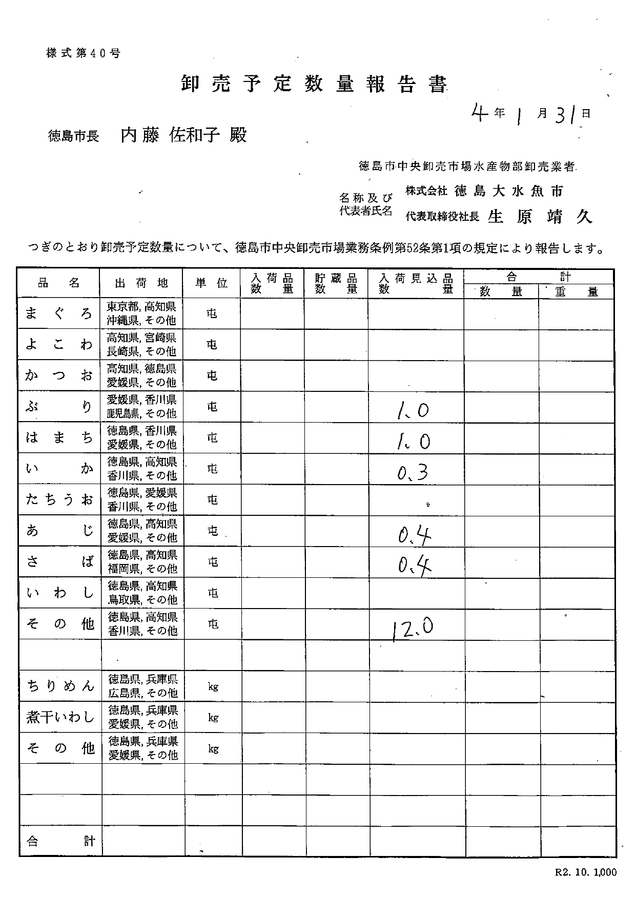 様式第40号
卸売予定数量報告書
4年1月31日
徳島市長 内藤 佐和子 殿
徳島市中央卸売市場水産物部卸売業者
名称及び 株式会社 徳島大水魚市
代表者氏名 代表取締役社長 生原靖久
つぎのとおり卸売予定数量について、徳島市中央卸売市場業務条例第52条第1項の規定により報告します。
品名 出荷地 単位 入荷品数量 貯蔵品数量 入荷見込品数量 合計
数量 重量
まぐろ 東京都, 高知県 屯
沖縄県, その他
よこわ 高知県, 宮崎県 屯
長崎県, その他
かつお 高知県, 徳島県 屯
愛媛県, その他
ぶり 愛媛県, 香川県 屯 1.0
鹿児島県, その他
はまち 徳島県, 香川県 屯 1.0
愛媛県, その他
いか 徳島県, 高知県 屯 0.3
香川県, その他
たちうお 徳島県, 愛媛県 屯
香川県, その他
あじ 徳島県, 高知県 屯 0.4
愛媛県, その他
さば 徳島県, 高知県 屯 0.4
福岡県, その他
いわし 徳島県, 高知県 屯
鳥取県, その他
その他 徳島県, 高知県 屯 12.0
香川県, その他
ちりめん 徳島県, 兵庫県 kg
広島県, その他
煮干いわし 徳島県, 兵庫県 kg
愛媛県, その他
その他 徳島県, 兵庫県 kg
愛媛県, その他
合計
R2. 10. 1,000